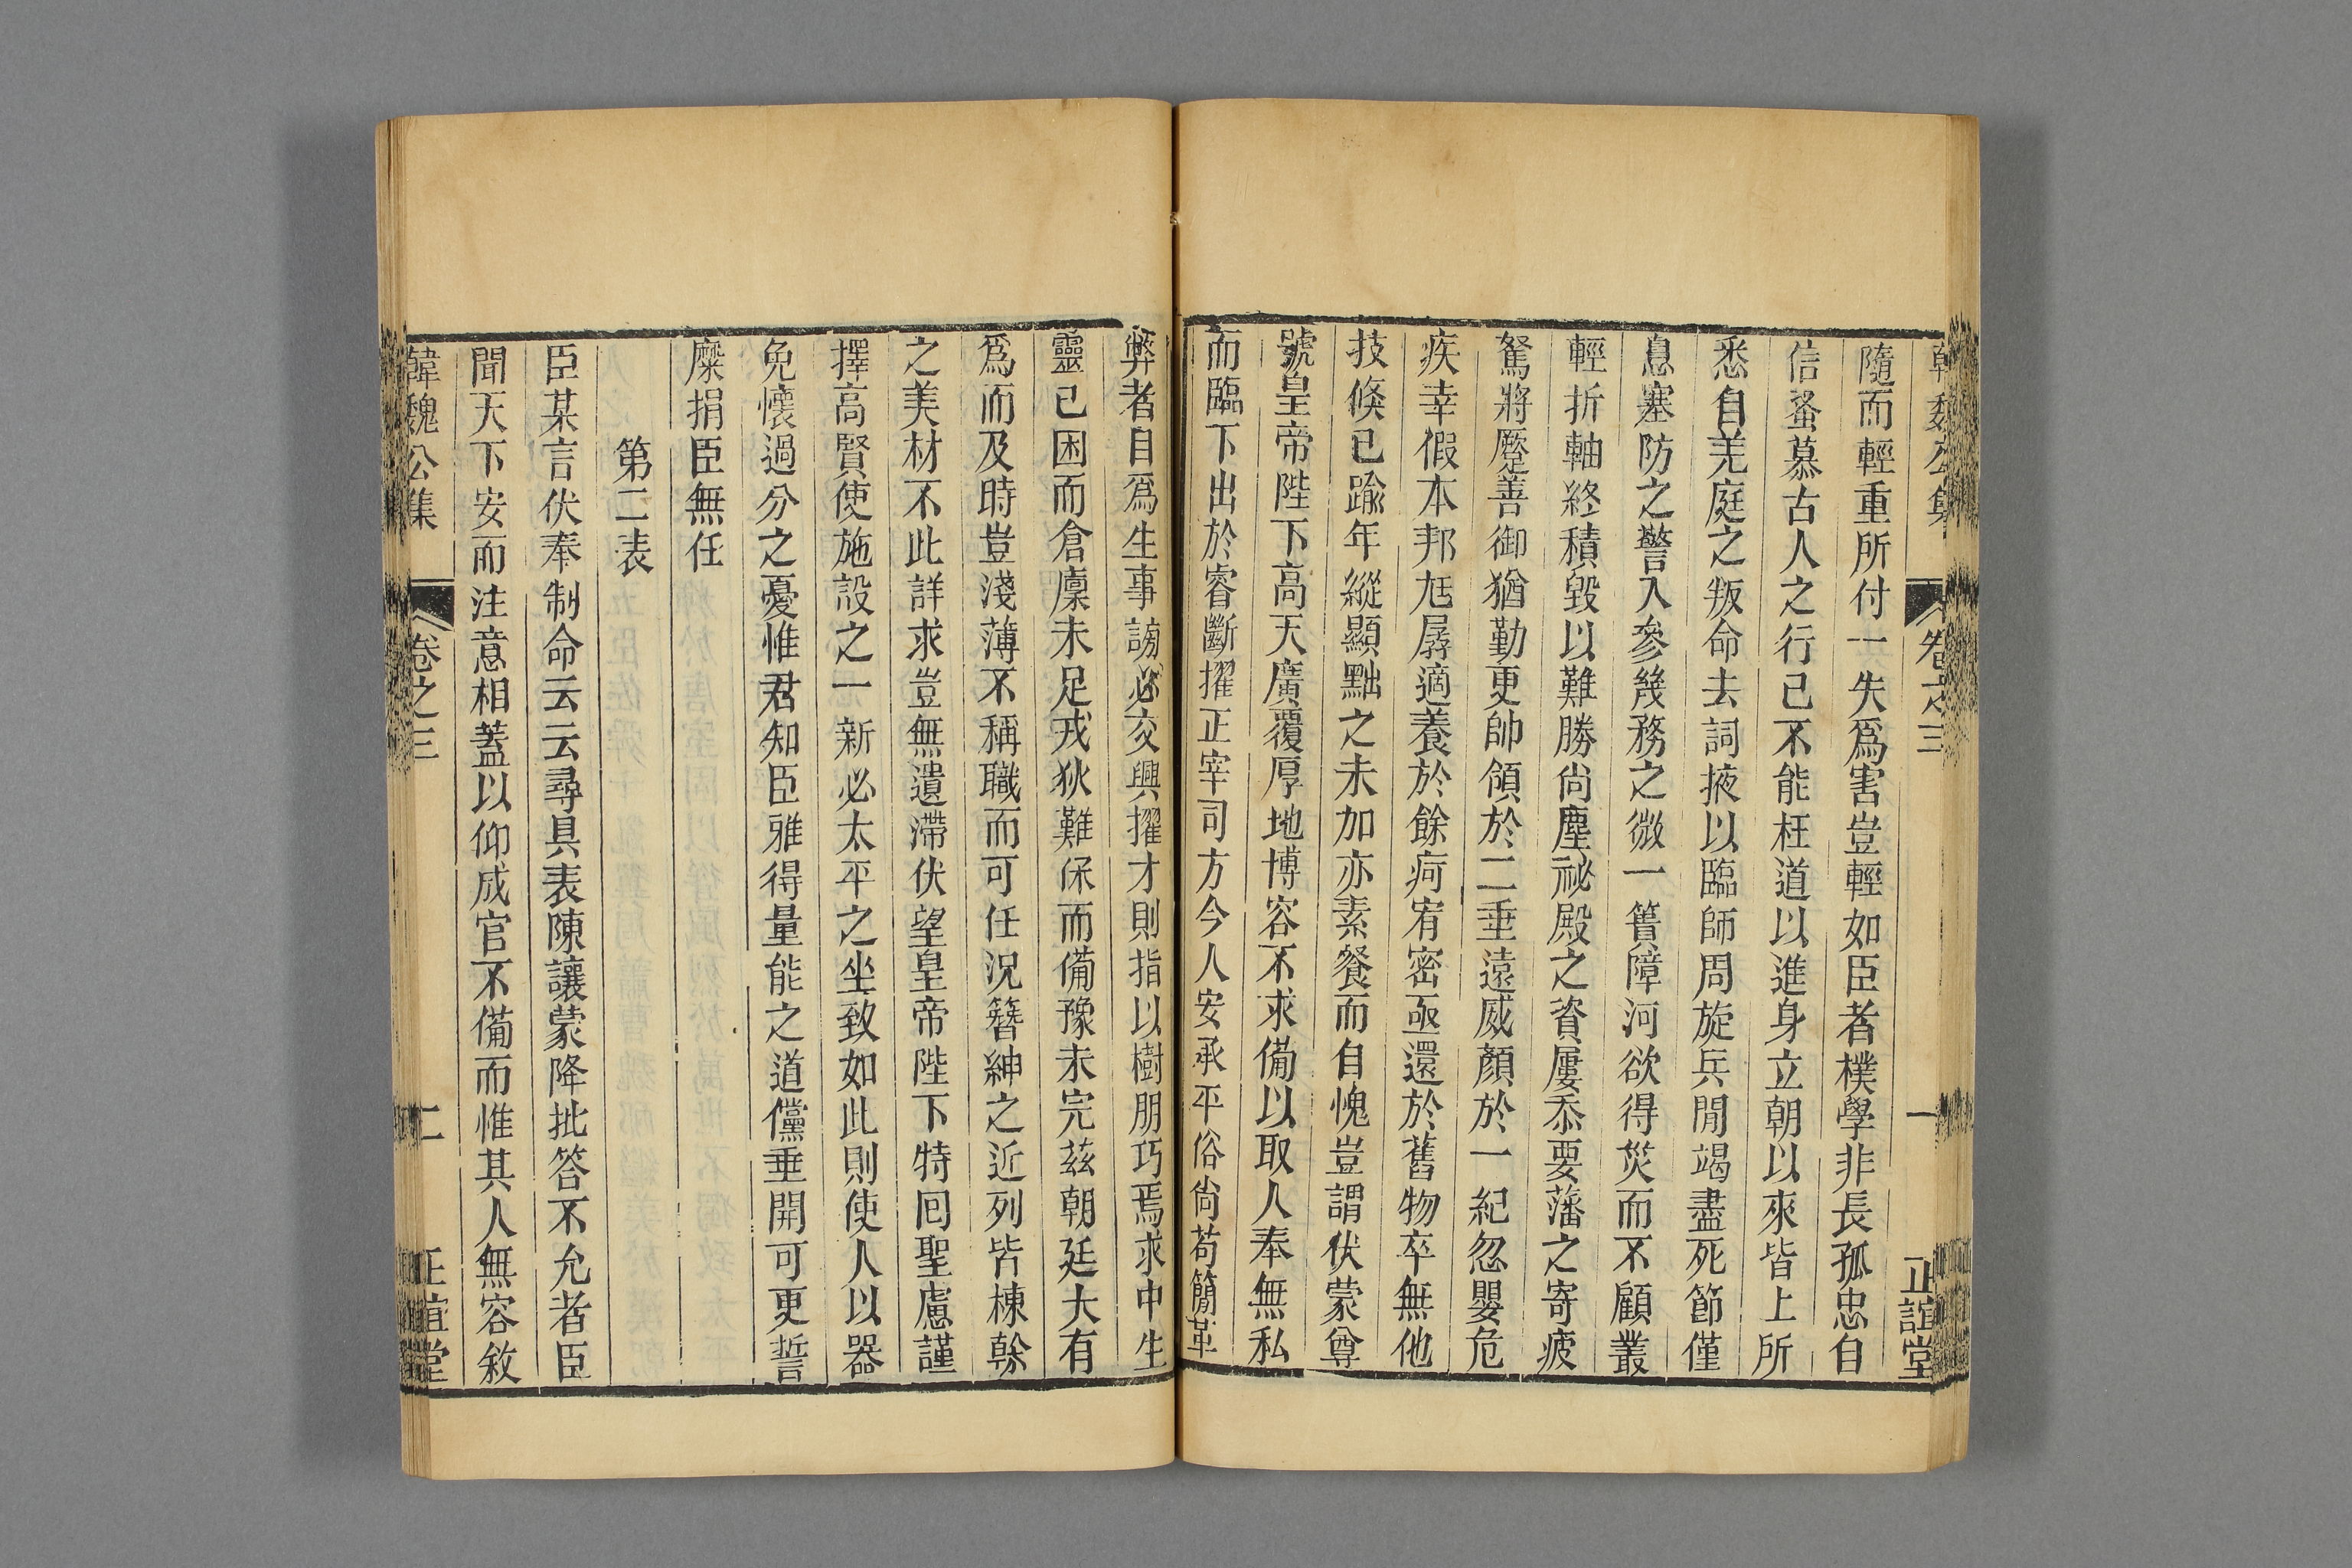 韓魏公集 卷之三 一 正誼堂
隨而輕重所付一失爲害豈輕如臣者樸學非長孤忠自
信蚤慕古人之行己不能枉道以進身立朝以來皆上所
悉自羌庭之叛命去詞掖以臨師周旋兵閒竭盡死節僅
息塞防之警入參幾務之微一簣障河欲得災而不顧叢
輕折軸終積毀以難勝尙塵祕殿之資屢忝要藩之寄疲
駑將壓善御猶勤更帥領於二垂遠威顏於一紀忽嬰危
疾幸假本邦尫孱適養於餘疴宥密亟還於舊物卒無他
技倏已踰年縱顯黜之未加亦素餐而自愧豈謂伏蒙尊
號皇帝陛下高天廣覆厚地博容不求備以取人奉無私
而臨下出於睿斷擢正宰司方今人安承平俗尙苟簡革
弊者自爲生事謗必交興擢才則指以樹朋巧焉求中生
靈已困而倉廩未足戎狄難保而備豫未完茲朝廷大有
爲而及時豈淺薄不稱職而可任況簪紳之近列皆棟榦
之美材不此詳求豈無遺滯伏望皇帝陛下特回聖慮謹
擇高賢使施設之一新必太平之坐致如此則使人以器
免懷過分之憂惟君知臣雅得量能之道儻垂開可更誓
糜捐臣無任
第二表
臣某言伏奉制命云云尋具表陳讓蒙降批答不允者臣
聞天下安而注意相蓋以仰成官不備而惟其人無容敘
韓魏公集 卷之三 二 正誼堂